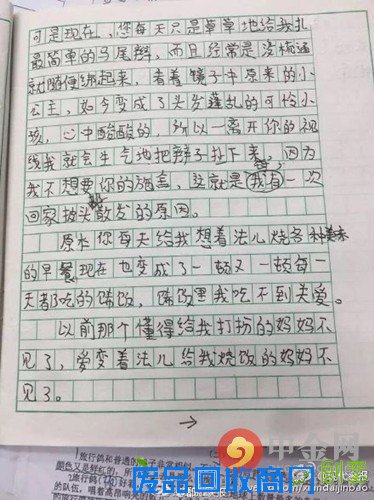 可是现在，您每天只是草草地给我扎
最简单的马尾辫，而且经常是没梳通
就随便绑起来，看着镜子中原来的小
公主，如今变成了头发蓬乱的可怜小
孩，心中酸酸的，所以一离开你的视
线我就会生气地把辫子扯下来，因为
我不想要你的施舍，这就是我有一次
回家披头散发的原因。
原本你每天给我想着法儿烧各种美味
的早餐现在也变成了一顿又一顿每一
天都吃的稀饭，稀饭里我吃不到关爱。
以前那个懂得给我打扮的妈妈不
见了，爱变着法儿给我烧饭的妈妈不
见了。
→
旅行鸽和普通的
颜色又是鲜红的，所
旅行鸽
的队伍，唱着高昂
中金网
废品回收商网